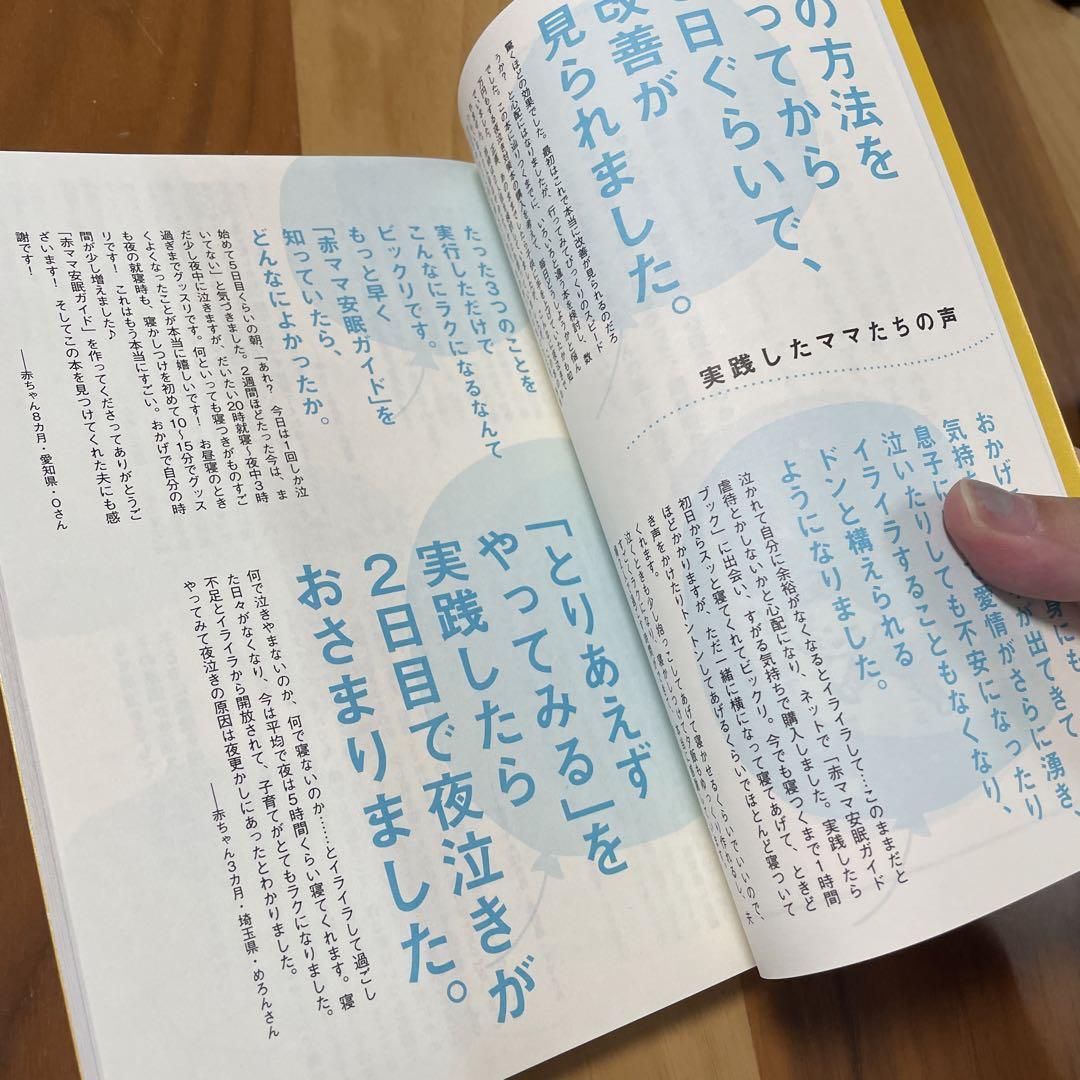 の方法を
ってから
日ぐらいで、
改善が
見られました。
驚くほどの効果でした。最初はこれで本当に改善が見られるのだろ
うか？ と心配にはなりましたが、行ってみてびっくりのスピード
でした。この本に辿りつくまでに、いろいろと違う本を検討し、数
実践したママたちの声
おかげで
身にも
気持ち
が出てきて、
息子に
愛情がさらに湧き、
泣いたりしても不安になったり
イライラすることもなくなり、
ドンと構えられる
ようになりました。
泣かれて自分に余裕がなくなるとイライラして…このままだと
虐待とかしないかと心配になり、ネットで「赤ママ安眠ガイド
ブック」に出会い、すがる気持ちで購入しました。実践したら
初日からスッと寝てくれてビックリ。今でも寝つくまで1時間
ほどかかりますが、ただ一緒に横になって寝てあげて、ときど
き声をかけたりトントンしてあげるくらいでほとんど寝ついて
くれます。
たった3つのことを
実行しただけで
こんなにラクになるなんて
ビックリです。
もっと早く
「赤ママ安眠ガイド」を
知っていたら、
どんなによかったか。
始めて5日目くらいの朝、「あれ？ 今日は1回しか泣
いてない」と気づきました。2週間ほどたった今は、ま
だ少し夜中に泣きますが、だいたい20時就寝〜夜中3時
過ぎまでグッスリです。何といっても寝つきがものすご
くよくなったことが本当に嬉しいです！ お昼寝のとき
も夜の就寝時も、寝かしつけを初めて10〜15分でグッス
リです！ これはもう本当にすごい。おかげで自分の時
間が少し増えました♪
「赤ママ安眠ガイド」を作ってくださってありがとうご
ざいます！ そしてこの本を見つけてくれた夫にも感
謝です！
――赤ちゃん8カ月・愛知県・Oさん
「とりあえず
やってみる」を
実践したら
2日目で夜泣きが
おさまりました。
何で泣きやまないのか、何で寝ないのか……とイライラして過ごし
た日々がなくなり、今は平均で夜は5時間くらい寝てくれます。寝
不足とイライラから開放されて、子育てがとてもラクになりました。
やってみて夜泣きの原因は夜更かしにあったとわかりました。
――赤ちゃん3カ月・埼玉県・めろんさん